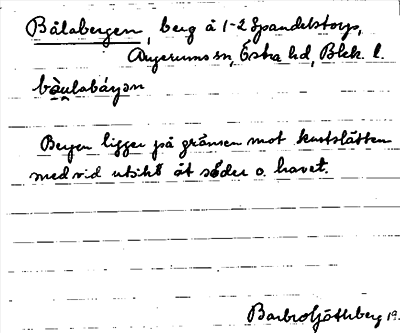 Bålabergen, berg å 1-2 Spandelstorp,
Augerums sn, Östra hd, Blek. l.
bàulabáyən
Bergen ligger på gränsen mot kustslätten
med vid utsikt åt söder o. havet.
Barbro Göthberg 19.